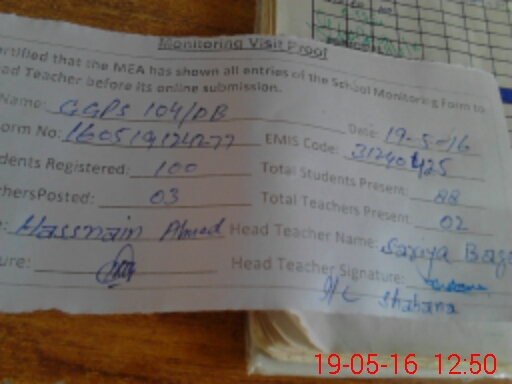 Monitoring Visit Proof
ertified that the MEA has shown all entries of the School Monitoring Form to
ead Teacher before its online submission.
Name: GGPS 104/DB Date: 19-5-16
orm No: EMIS Code: 31240425
dents Registered: 100 Total Students Present: 88
chersPosted: 03 Total Teachers Present 02
: Hassnain Ahmed Head Teacher Name: Saxiya
ure: Head Teacher Signature:
I/C Shabana
19-05-16 12:50